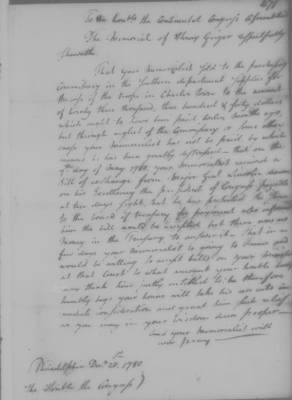 To the Honble the Continental Congress Assembled
The Memorial of Henry Geiger respectfully
Sheweth
That your Memorialist sold to the purchasing
Commissary in the Southern department Supplies for
the use of the troops in Charles Town to the amount
of twenty three thousand, three hundred & forty dollars
which ought to have been paid
but through neglect of the Commissary or some other
cause your Memorialist has not been paid by which
means he has been greatly distressed that on the
day of May 1780 your Memorialist received a
Bill of exchange from Major Genl Lincoln drawn
on his Excellency the president of Congress payable
at ten days sight, but he has presented the same
to the board of Treasury for payment who informed
him the bill would be accepted but there was no
money in the Treasury to answer it. That in a
few days your Memorialist is going to France and
would be willing to accept bills on your
at that Court to what amount your honble body
may think him justly entitled to he therefore
humbly begs your honors will take his case into im
mediate consideration and grant him such relief
as you may in your wisdom deem proper
and your Memorialist will
ever pray
Philadelphia Decr 28. 1780
The Honble the Congress